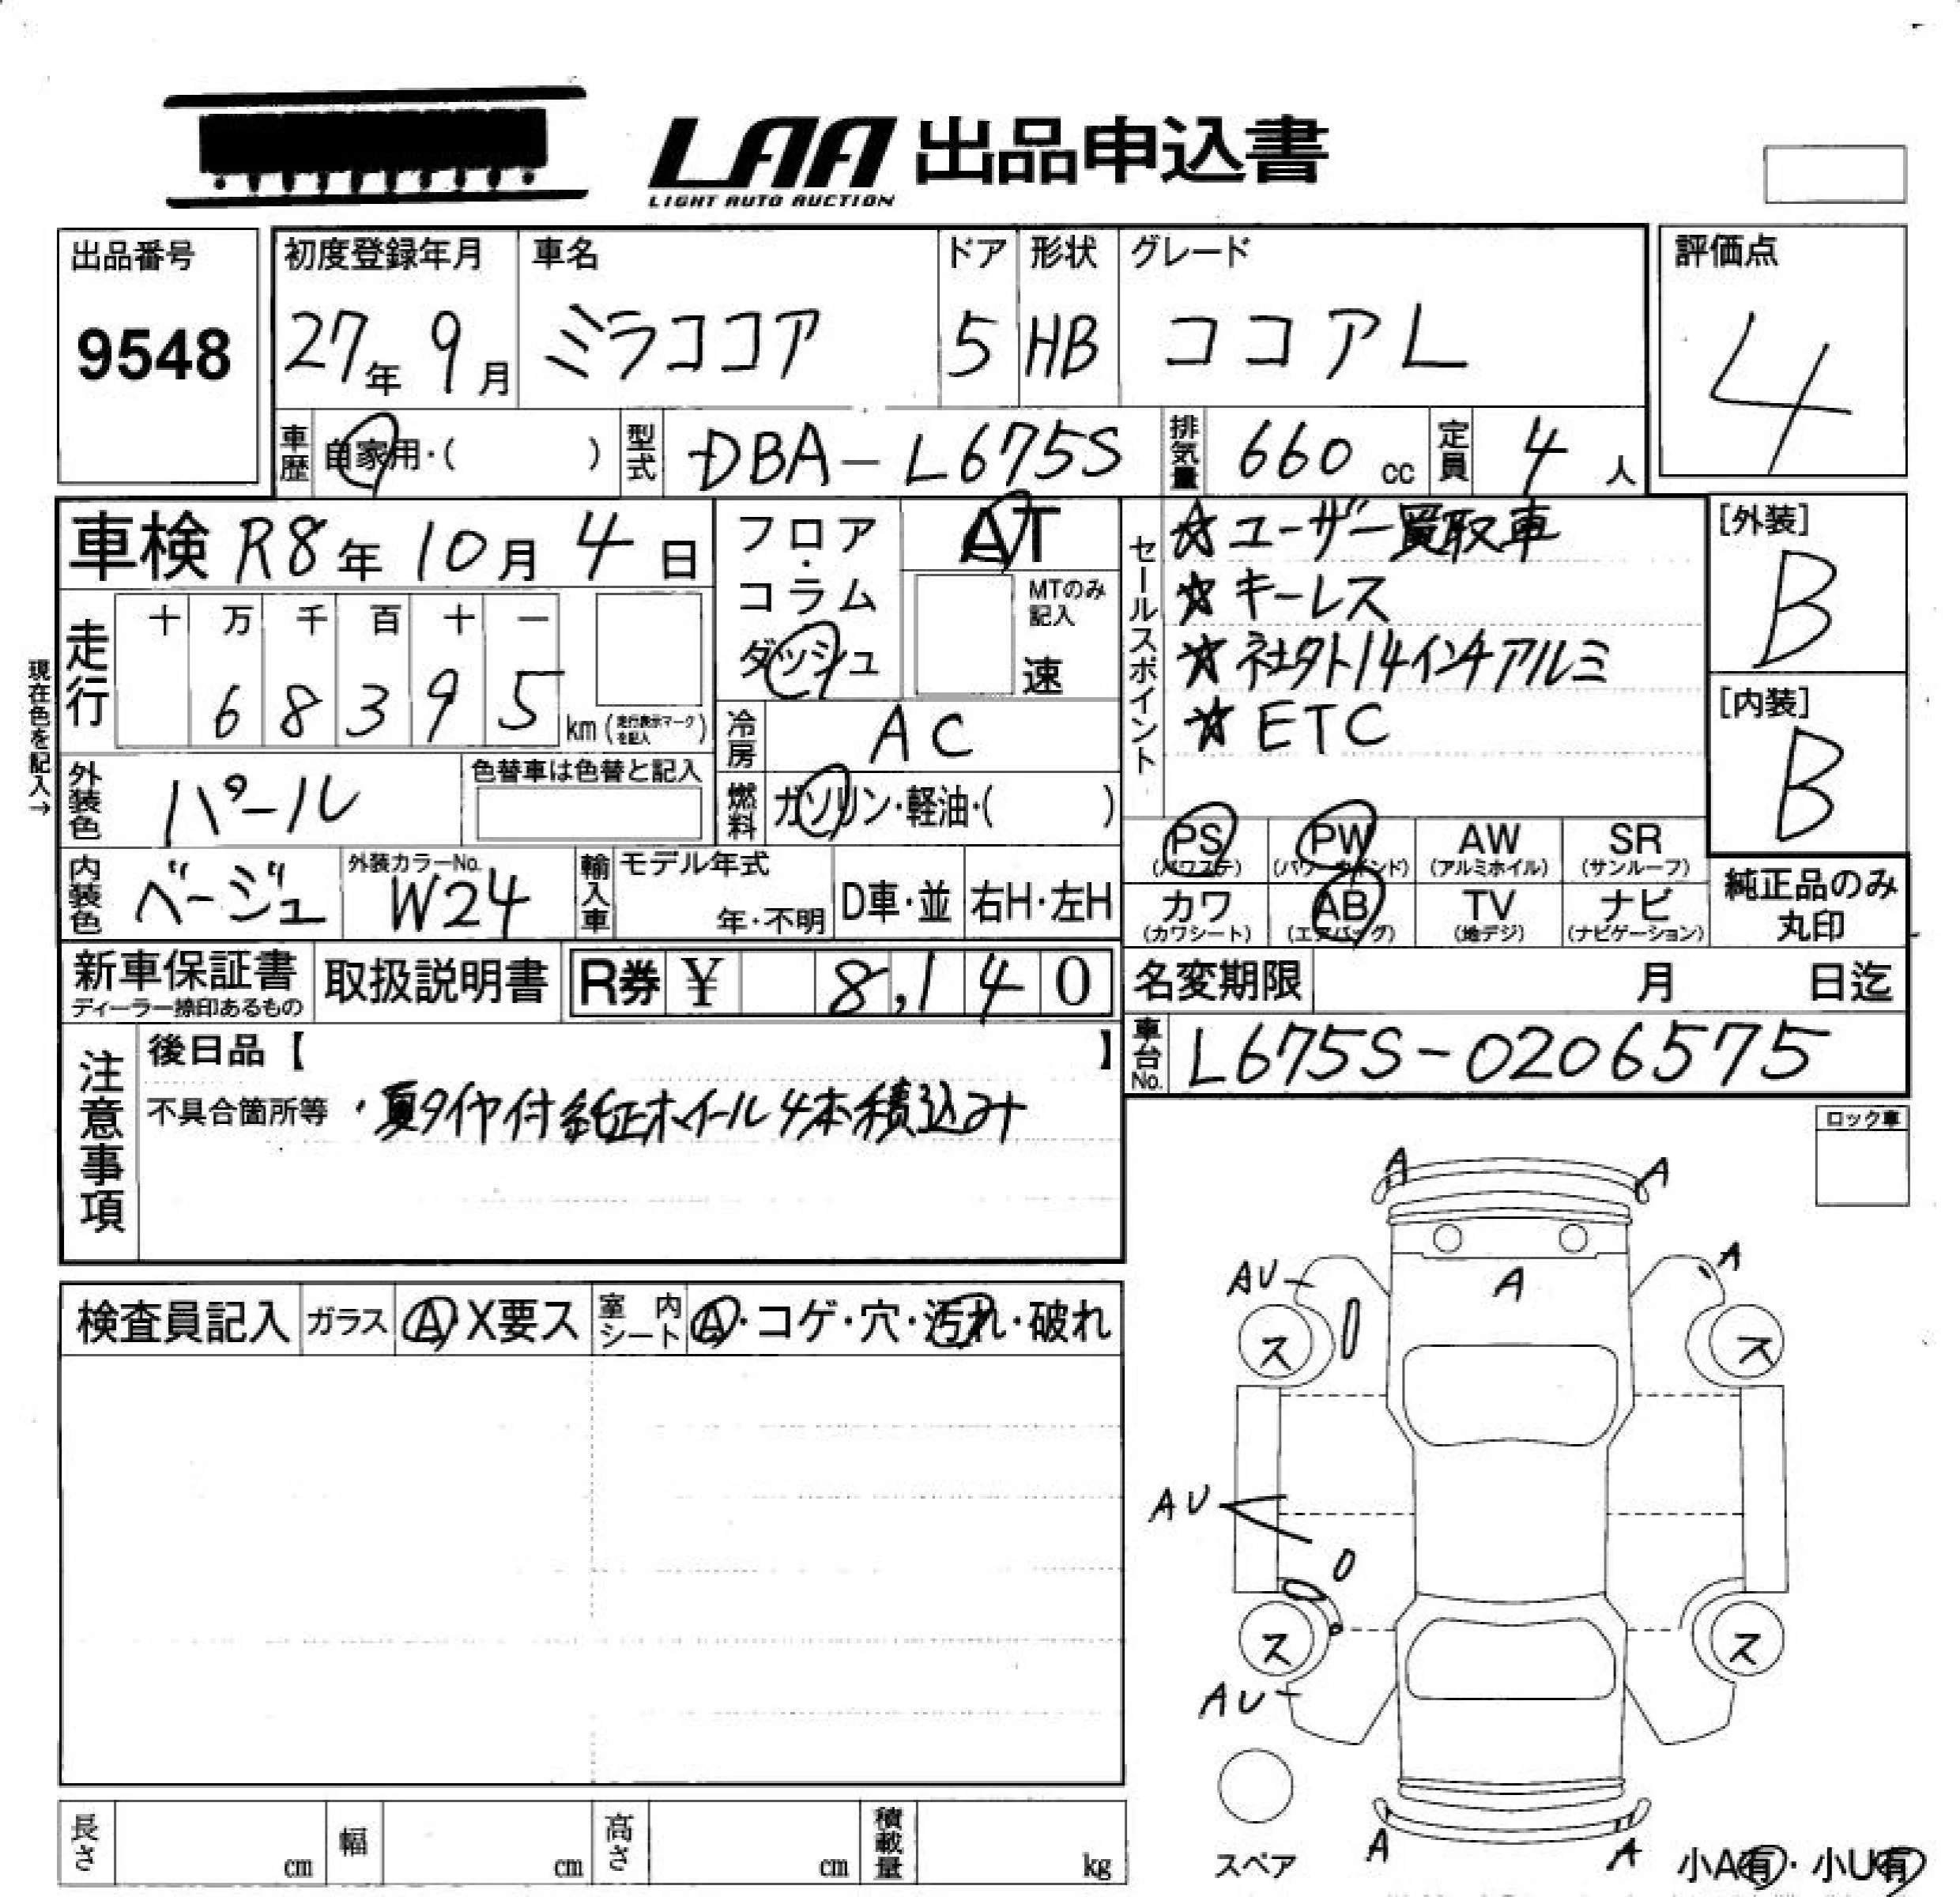 LAA 出品申込書
LIGHT AUTO AUCTION
出品番号
9548
初度登録年月
27年 9月
車名
ミラココア
ドア
5
形状
HB
グレード
ココアL
評価点
4
車歴 自家用・( )
型式 DBA-L675S
排気量 660 cc
定員 4人
車検 R8年 10月 4日
現在色を記入→
走行 十 万 千 百 十 一
6 8 3 9 5 km (走行表示マークを記入)
フロア・コラム
ダッシュ
AT
MTのみ記入
速
冷房 AC
燃料 ガソリン・軽油・( )
外装色 パール
色替車は色替と記入
内装色 ベージュ
外装カラーNo.
W24
輸入車 モデル年式
年・不明
D車・並
右H・左H
セールスポイント
☆ユーザー買取車
☆キーレス
☆社外14インチアルミ
☆ETC
[外装]
B
[内装]
B
PS
(パワステ)
PW
(パワーウインド)
AW
(アルミホイル)
SR
(サンルーフ)
カワ
(カワシート)
AB
(エアバッグ)
TV
(地デジ)
ナビ
(ナビゲーション)
純正品のみ
丸印
新車保証書
ディーラー捺印あるもの
取扱説明書
R券 ¥ 8,140
名変期限 月 日迄
車台No. L675S-0206575
注意事項
後日品【 】
不具合箇所等 ・夏タイヤ付純正ホイール4本積込み
ロック車
検査員記入
ガラス
A X要ス
室内シート
A・コゲ・穴・汚れ・破れ
A
A
AU
A
A
ス
ス
AU
ス
ス
AU
スペア
A
A
小A有・小U有
長さ cm
幅 cm
高さ cm
積載量 kg